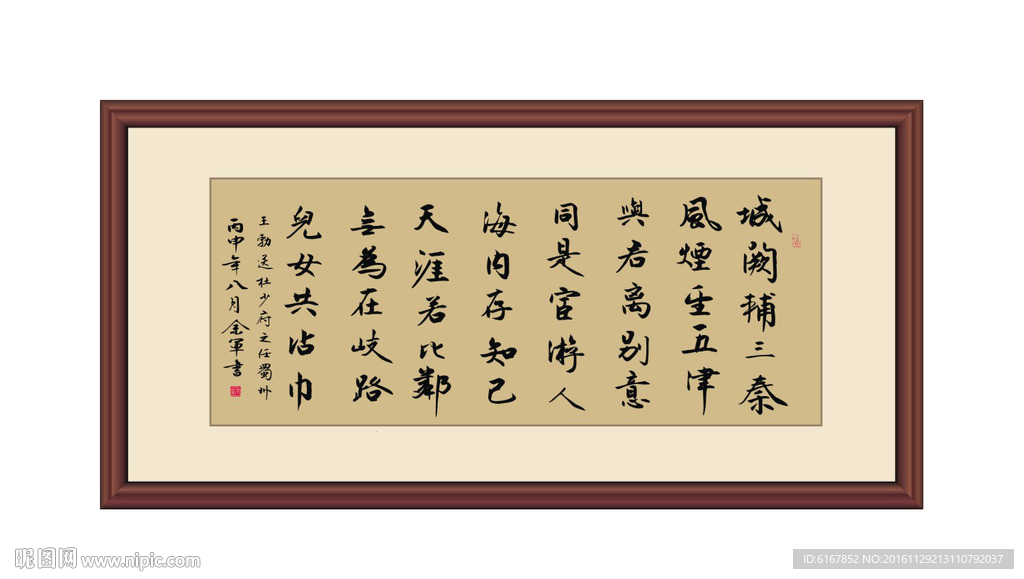 城闕輔三秦
風煙望五津
與君离别意
同是宦游人
海内存知己
天涯若比鄰
無為在岐路
兒女共沾巾
王勃送杜少府之任蜀州
丙申年八月余軍書
昵图网 www.nipic.com
ID:6167852 NO:20161129213110792037